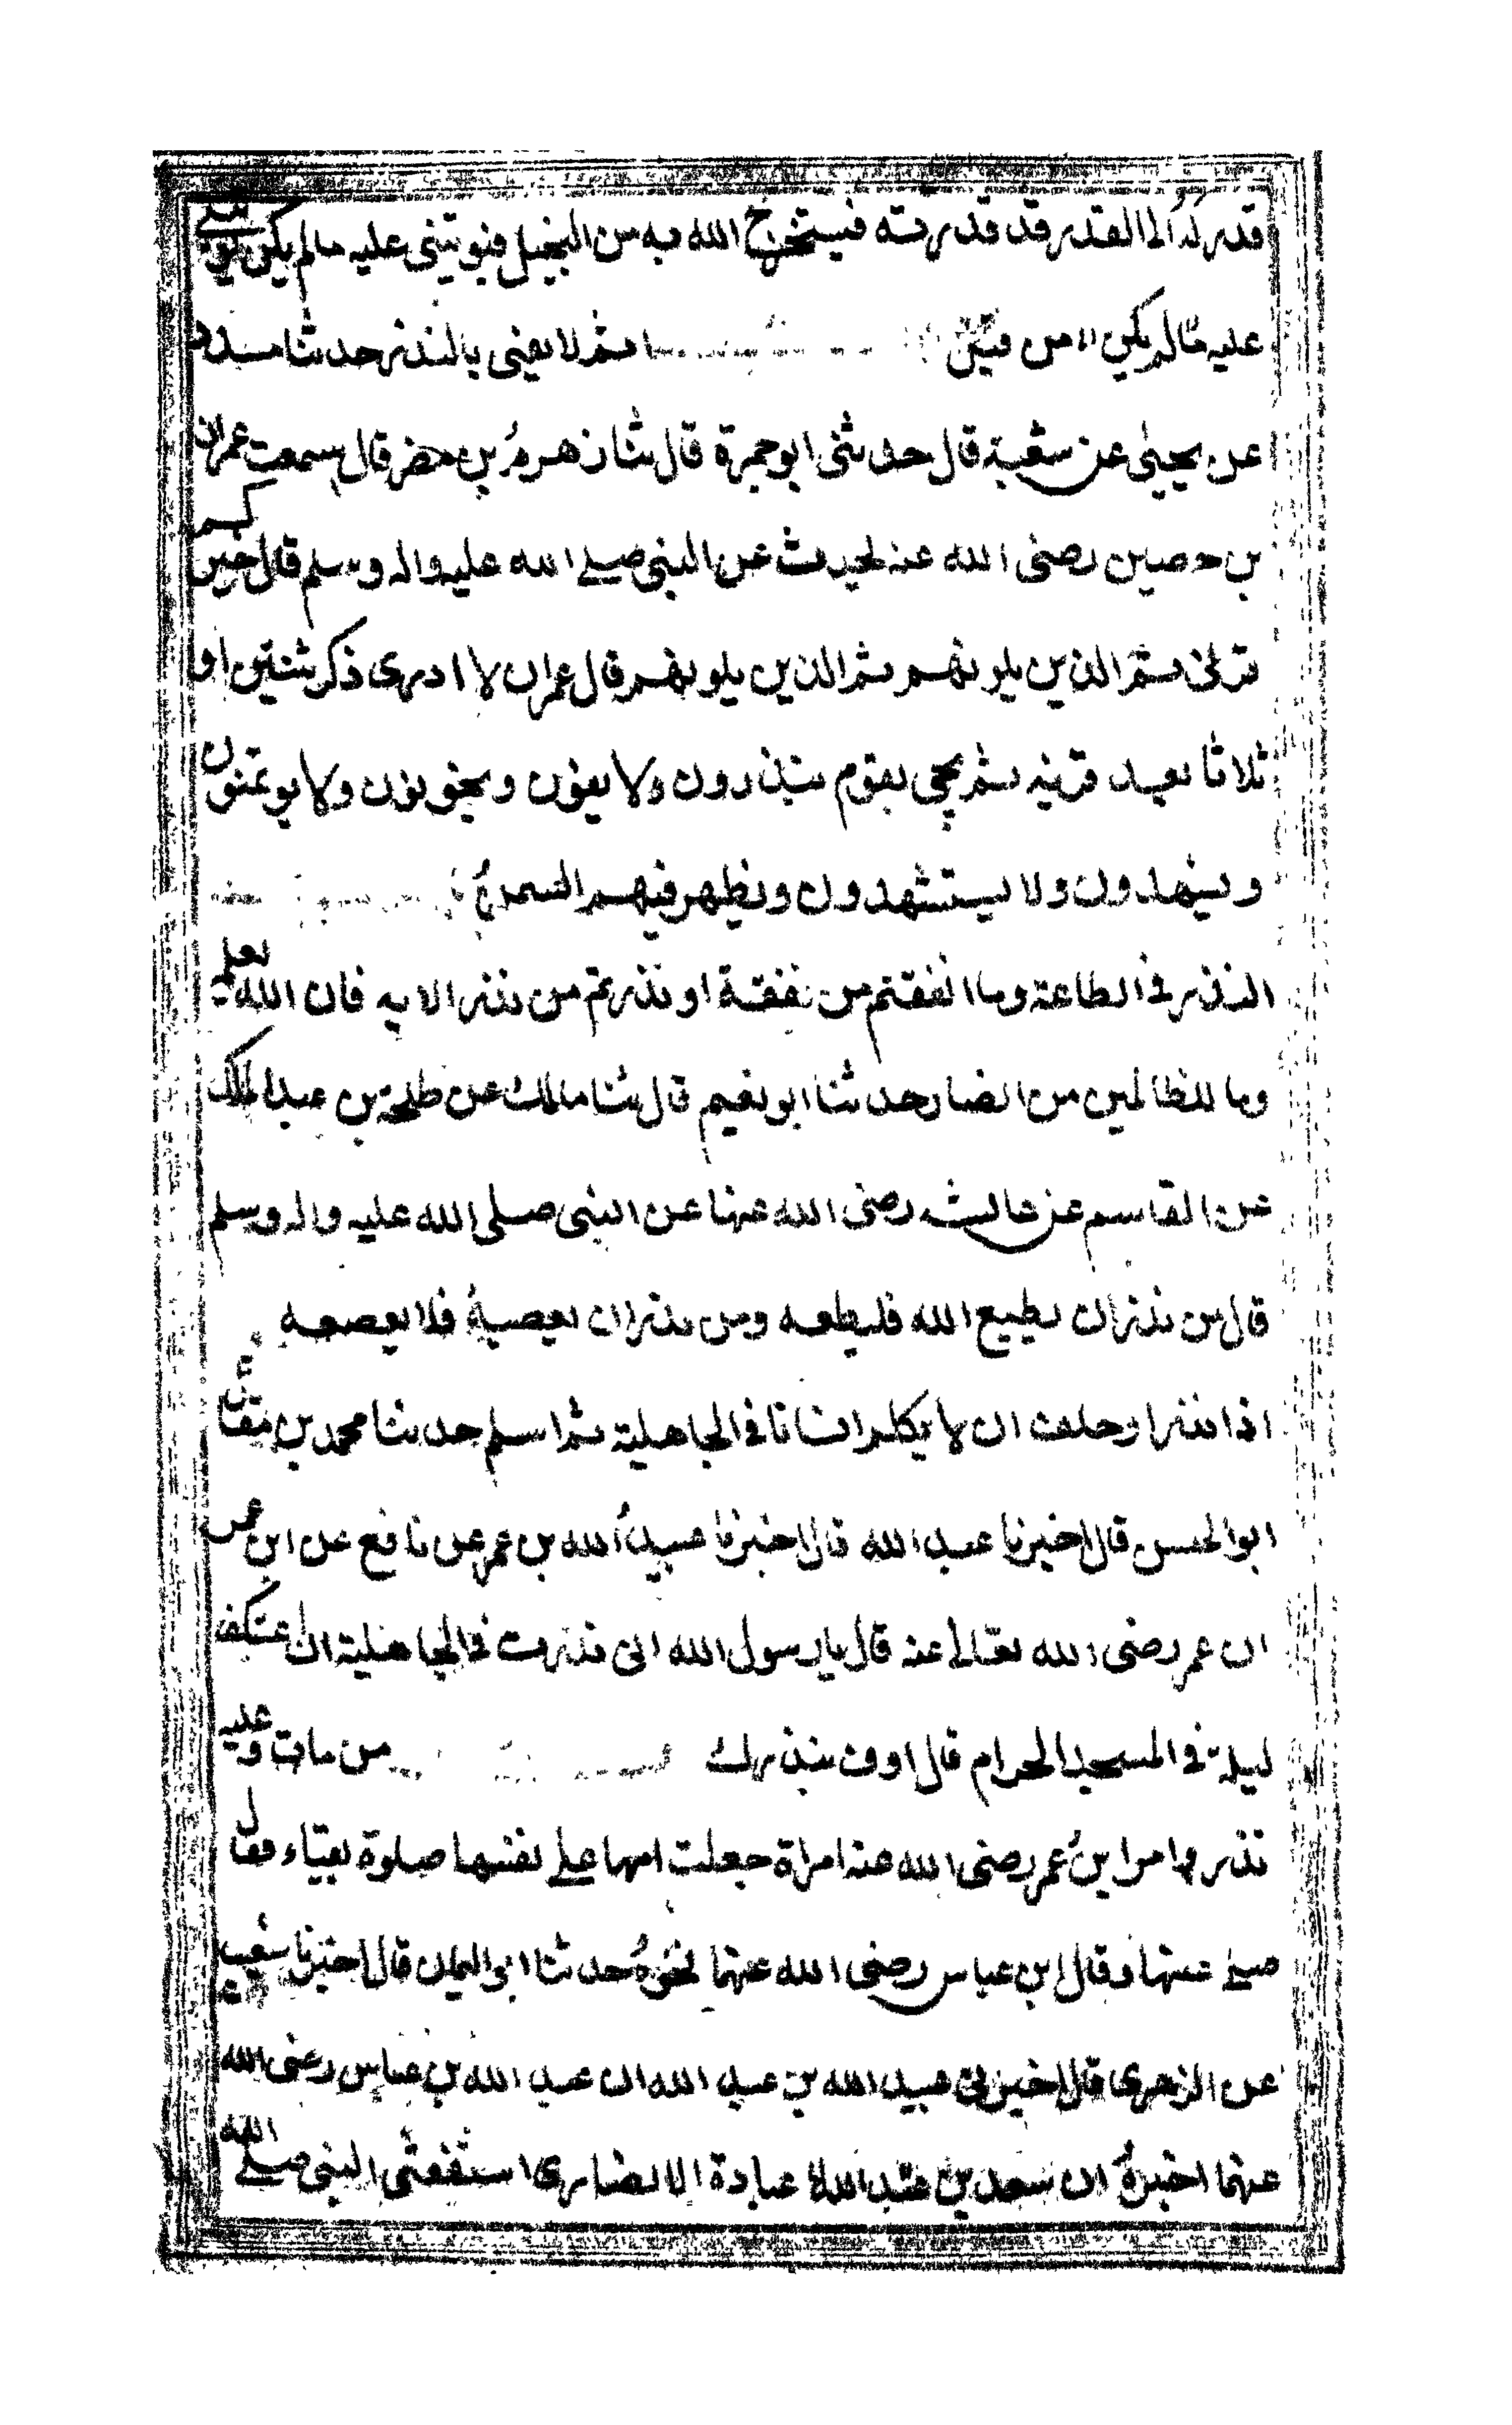 قدر له الى القدر قد قدرته فيستخرج الله به من البخيل فيوتينى عليه مالم يكن يوتينى
عليه مالم يكن من قبل اثم لا يفى بالنذر حدثنا مسدد
عن يحيى عن شعبة قال حدثنى ابو جمرة قال ثنا زهدم بن مضر قال سمعت عمران
بن حصين رضى الله عنه يحدث عن النبى صلى الله عليه واله وسلم قال خيركم
قرنى ثم الذين يلونهم ثم الذين يلونهم قال عمران لا ادرى ذكر ثنتين او
ثلاثا بعد قرنه ثم يجى بقوم ينذرون ولا يفون ويخونون ولا يوتمنون
ويشهدون ولا يستشهدون ويظهر فيهم السمن
النذر فى الطاعة وما انفقتم من نفقة او نذرتم من نذر الايه فان الله يعلمه
وما للظالمين من انصار حدثنا ابو نعيم قال ثنا مالك عن طلحة بن عبد الملك
عن القاسم عن عائشه رضى الله عنها عن النبى صلى الله عليه واله وسلم
قال من نذر ان يطيع الله فليطعه ومن نذر ان يعصيه فلا يعصه
اذا نذر او حلف ان لا يكلم انسانا فى الجاهلية ثم اسلم حدثنا محمد بن مقاتل
ابو الحسن قال اخبرنا عبد الله قال اخبرنا عبيد الله بن عمر عن نافع عن ابن عمر
ان عمر رضى الله تعالى عنه قال يا رسول الله انى نذرت فى الجاهلية ان اعتكف
ليلة فى المسجد الحرام قال اوف بنذرك من مات وعليه
نذر وامر ابن عمر رضى الله عنه امراة جعلت امها على نفسها صلوة بقباء فقال
صلى عنها وقال ابن عباس رضى الله عنهما نحوه حدثنا ابو اليمان قال اخبرنا شعيب
عن الزهرى قال اخبرنى عبيد الله بن عبد الله ان عبد الله بن عباس رضى الله
عنهما اخبره ان سعد بن عبادة الانصارى استفتى النبى صلى الله